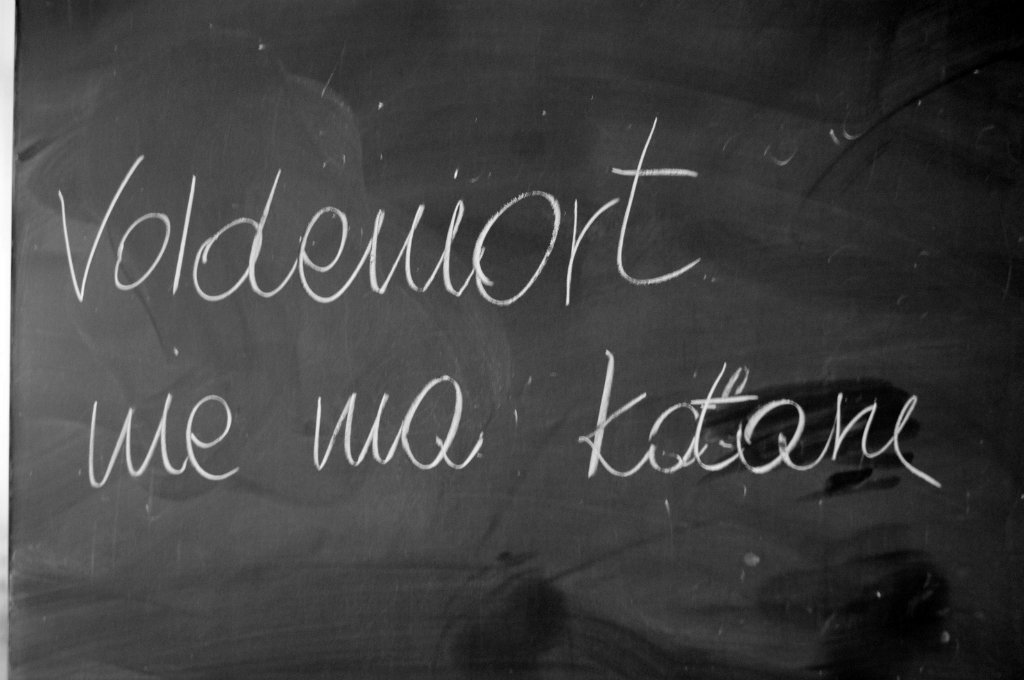 Voldemort
nie ma kataru